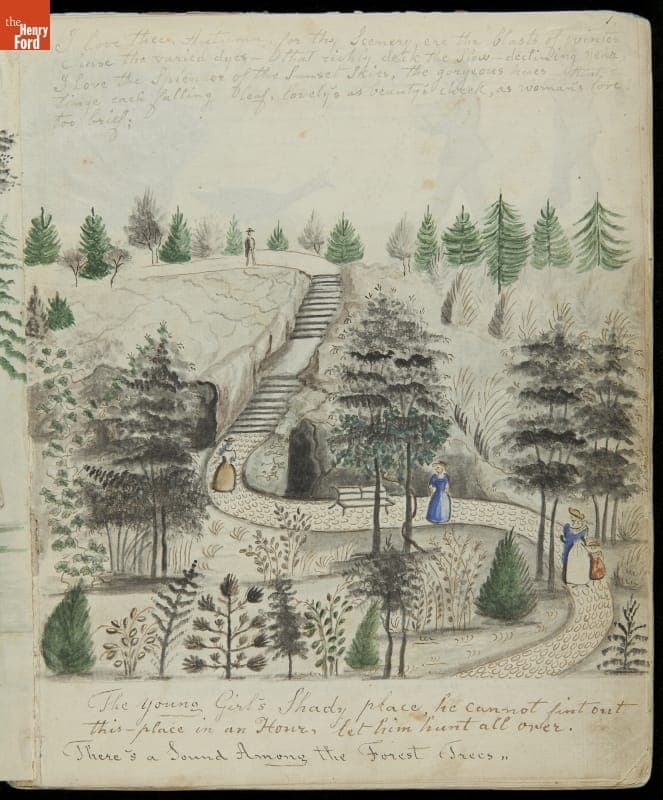 the
Henry
Ford
1.
I love thee Autumn, for thy Scenery, ere the blasts of winter
the varied dyes— that richly deck the slow—declining year
I love the Splendor of the Sunset Skies, the gorgeous hues — that
tinge each falling leaf, lovely as beauty's cheek, as woman's love
too brief;
The young Girl's Shady place, he cannot fint out
this-place in an Hour, let him hunt all over.
There's a Sound Among the Forest Trees „